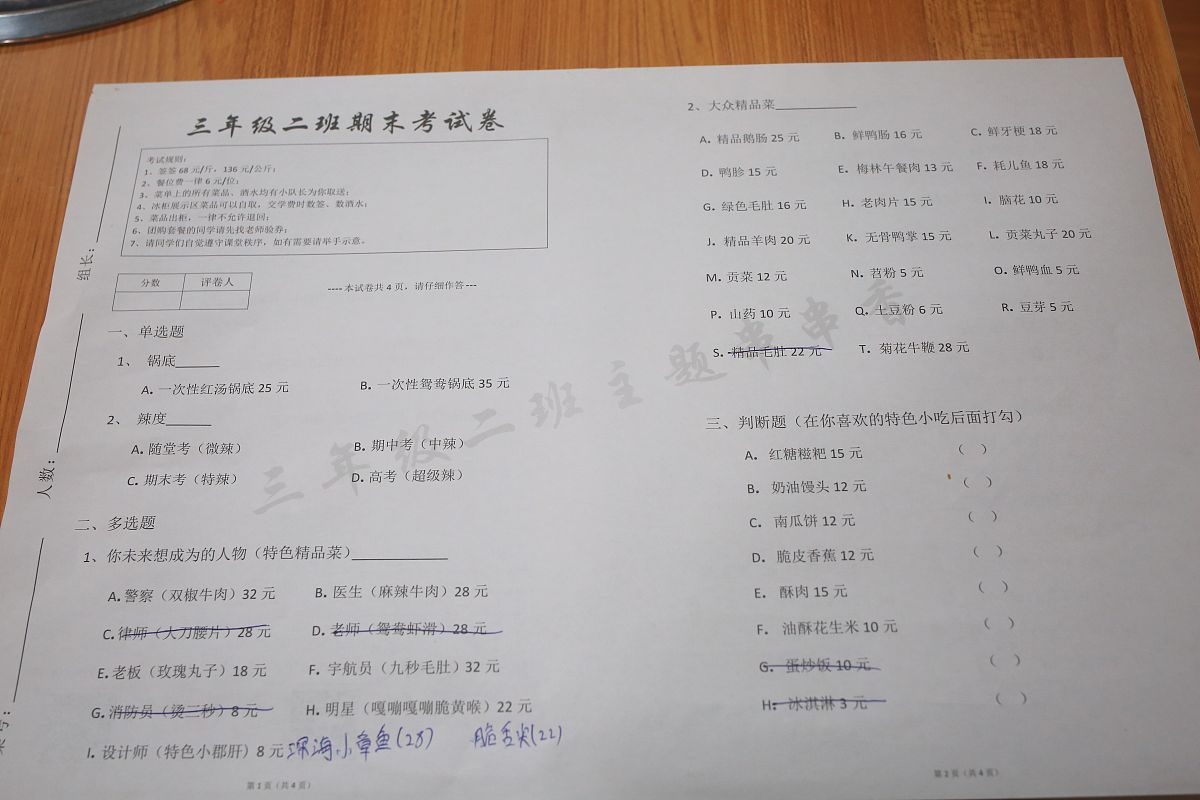 三年级二班期末考试卷
考试规则：
1、签签 68 元/斤，136 元/公斤；
2、餐位费一律 6 元/位；
3、菜单上的所有菜品、酒水均有小队长为你取送；
4、冰柜展示区菜品可以自取，交学费时数签、数酒水；
5、菜品出柜，一律不允许退回；
6、团购套餐的同学请先找老师验券；
7、请同学们自觉遵守课堂秩序，如有需要请举手示意。
组长：
人数：
分数 评卷人
----本试卷共 4 页，请仔细作答---
一、单选题
1、 锅底______
A. 一次性红汤锅底 25 元 B. 一次性鸳鸯锅底 35 元
2、 辣度______
A. 随堂考（微辣） B. 期中考（中辣）
C. 期末考（特辣） D. 高考（超级辣）
二、多选题
1、你未来想成为的人物（特色精品菜）____________
A. 警察（双椒牛肉）32 元 B. 医生（麻辣牛肉）28 元
C. 律师（大刀腰片）28 元 D. 老师（鸳鸯虾滑）28 元
E. 老板（玫瑰丸子）18 元 F. 宇航员（九秒毛肚）32 元
G. 消防员（烫三秒）8 元 H. 明星（嘎嘣嘎嘣脆黄喉）22 元
I. 设计师（特色小郡肝）8 元 深海小章鱼(28) 脆舌尖(22)
第 1 页（共 4 页）
2、大众精品菜____________
A. 精品鹅肠 25 元 B. 鲜鸭肠 16 元 C. 鲜牙梗 18 元
D. 鸭胗 15 元 E. 梅林午餐肉 13 元 F. 耗儿鱼 18 元
G. 绿色毛肚 16 元 H. 老肉片 15 元 I. 脑花 10 元
J. 精品羊肉 20 元 K. 无骨鸭掌 15 元 L. 贡菜丸子 20 元
M. 贡菜 12 元 N. 苕粉 5 元 O. 鲜鸭血 5 元
P. 山药 10 元 Q. 土豆粉 6 元 R. 豆芽 5 元
S. 精品毛肚 22 元 T. 菊花牛鞭 28 元
三、判断题（在你喜欢的特色小吃后面打勾）
A. 红糖糍粑 15 元 （ ）
B. 奶油馒头 12 元 （ ）
C. 南瓜饼 12 元 （ ）
D. 脆皮香蕉 12 元 （ ）
E. 酥肉 15 元 （ ）
F. 油酥花生米 10 元 （ ）
G. 蛋炒饭 10 元 （ ）
H. 冰淇淋 3 元 （ ）
第 2 页（共 4 页）
三年级二班主题串串香